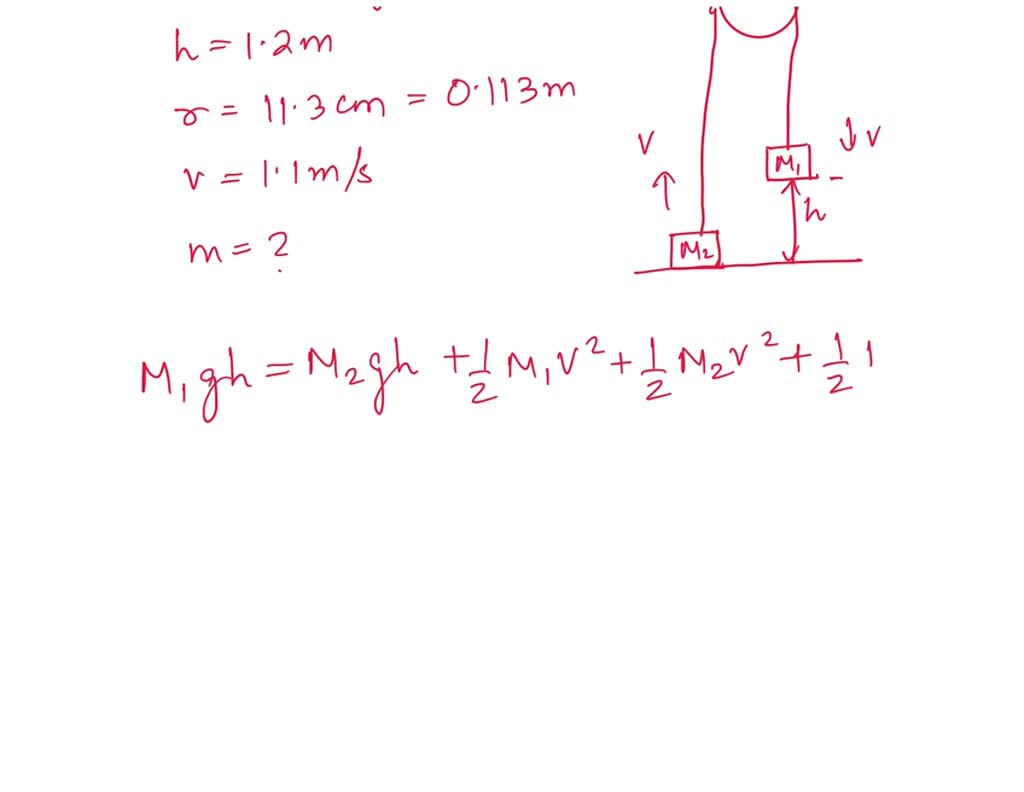 h = 1.2m
r = 11.3 cm = 0.113m
v = 1.1m/s
m = ?
v
M1
↓ v
h
M2
M1gh = M2gh + 1/2 M1v² + 1/2 M2v² + 1/2 I